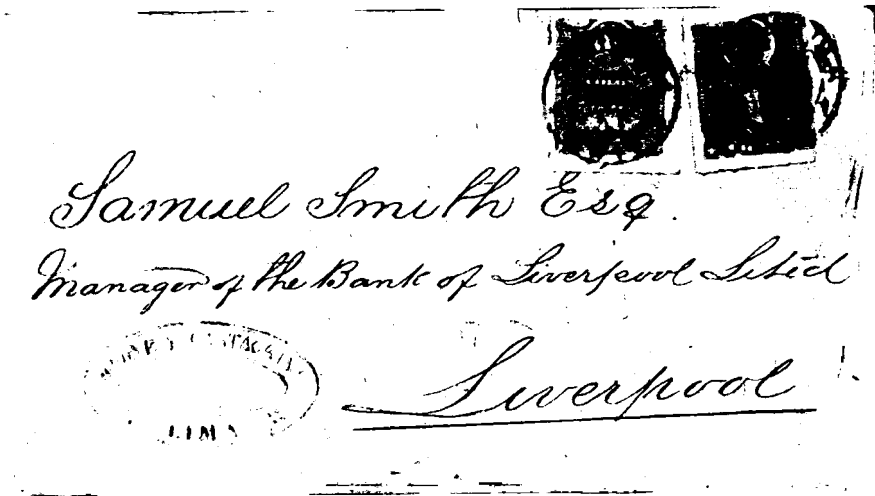 Samuel Smith Esq.
Manager of the Bank of Liverpool Lited
Liverpool
LIMA